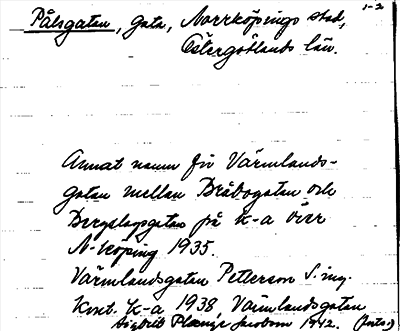 1-2
Pålsgatan, gata, Norrköpings stad,
Östergötlands län.
Annat namn för Värmlands-
gatan mellan Bråbogatan och
Bergslagsgatan på k-a över
N-köping 1935.
Värmlandsgatan Petterson S. ing.
Kont. K-a 1938, Värmlandsgatan
Sigbrit Plænge Jacobson 1942. (forts.)